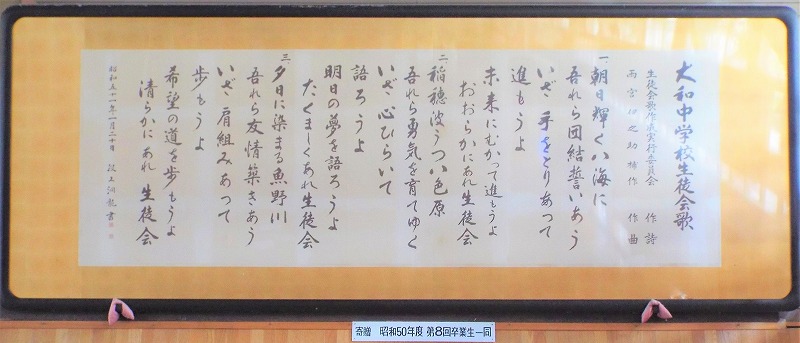 大和中学校生徒会歌
生徒会歌作成実行委員会 作詩
雨宮 之助 補作 作曲
一 朝日輝く八海に
吾れら団結誓いあう
いざ 手をとりあって
進もうよ
未来にむかって進もうよ
おおらかにあれ生徒会
二 稲穂波うつ八色原
吾れら勇気を育てゆく
いざ 心ひらいて
語ろうよ
明日の夢を語ろうよ
たくましくあれ生徒会
三 夕日に染まる魚野川
吾れら友情築きあう
いざ 肩組みあって
歩もうよ
希望の道を歩もうよ
清らかにあれ 生徒会
昭和五十一年一月二十日 龍書
寄贈 昭和50年度 第8回卒業生一同